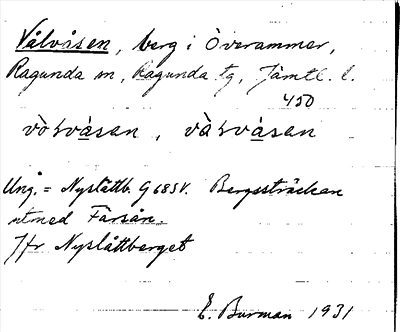 Vålvåsen, berg i Överammer,
Ragunda sn, Ragunda tg, Jämtl. l.
450
vòɽvåsan, vàɽvåsan
Ung. = Nyslåttb. G 68 SV. Bergssträckan
utmed Färsån.
Jfr Nyslåttberget
E. Burman 1931